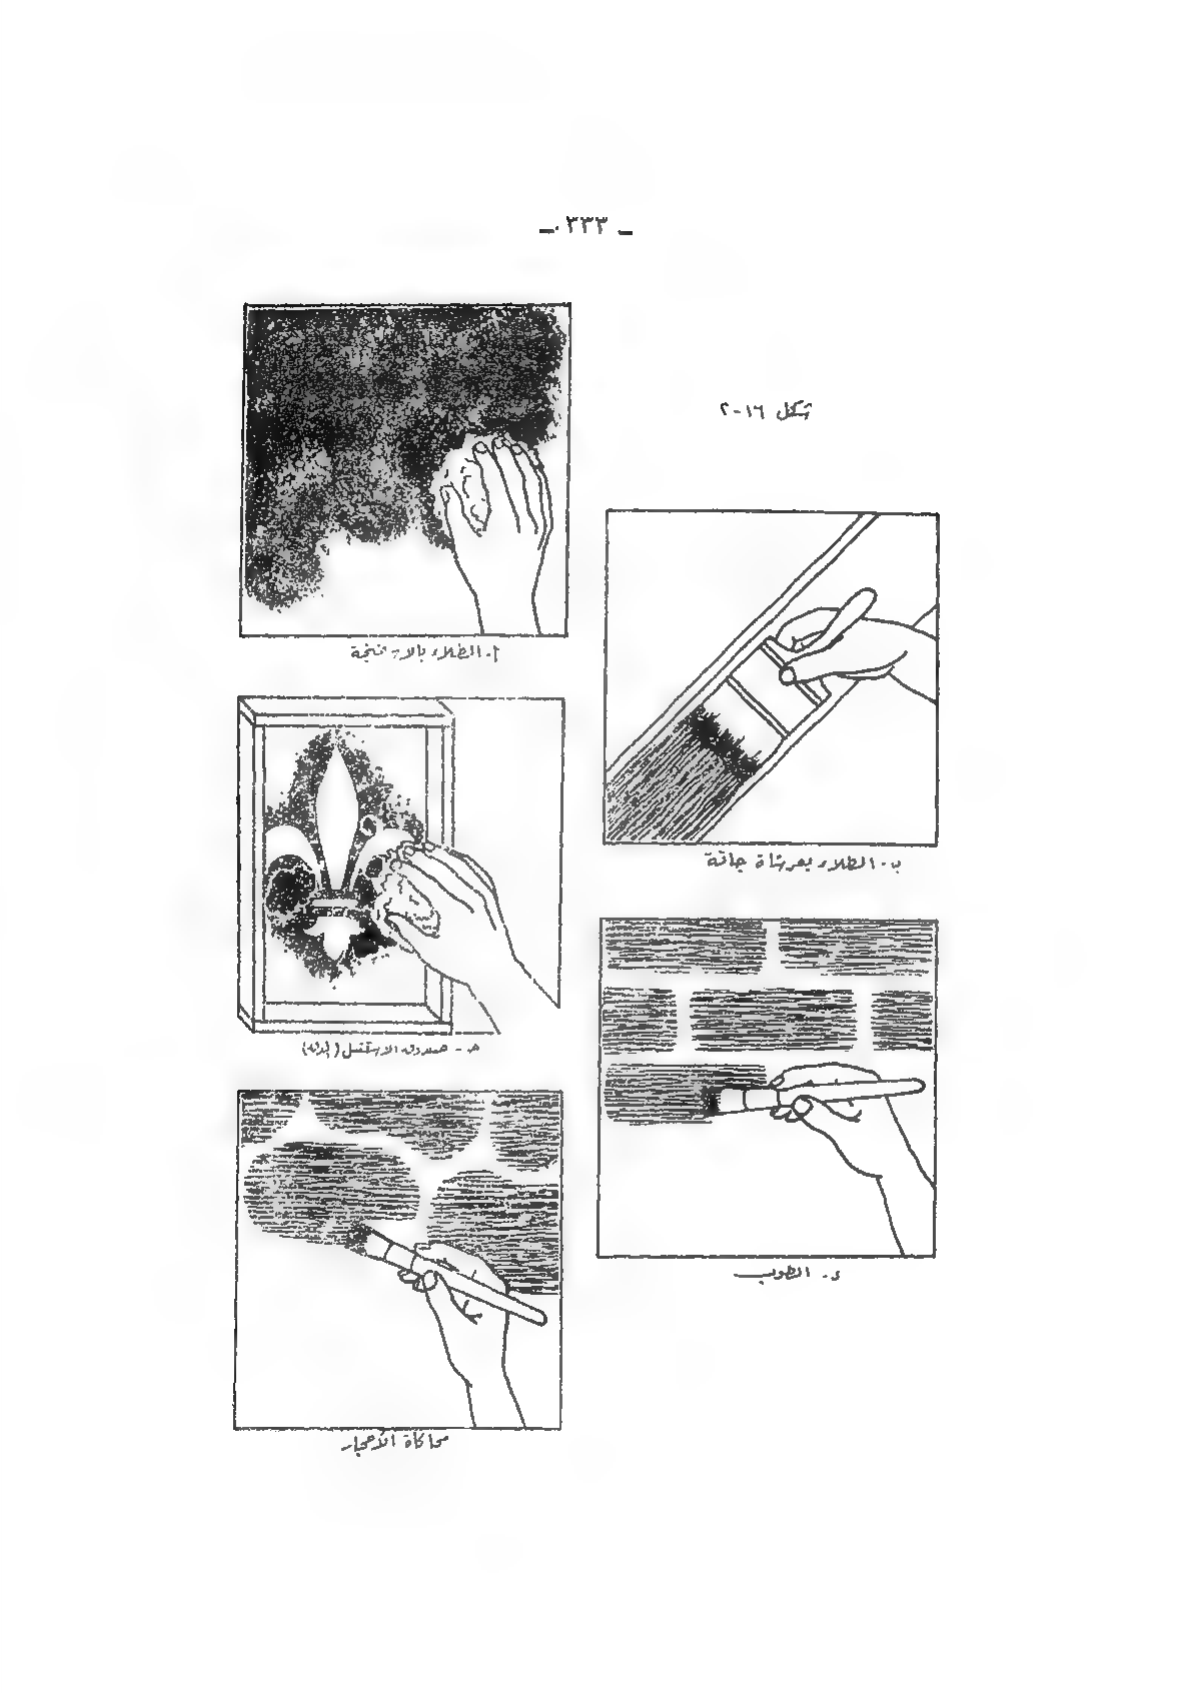 ـ ٣٣٣ ـ
شكل ١٦-٢
أ- الطلاء بالاسفنجة
ب- الطلاء بفرشاة جافة
حـ - صندوق الاستنسل
د- الطوب
محاكاة الأحجار